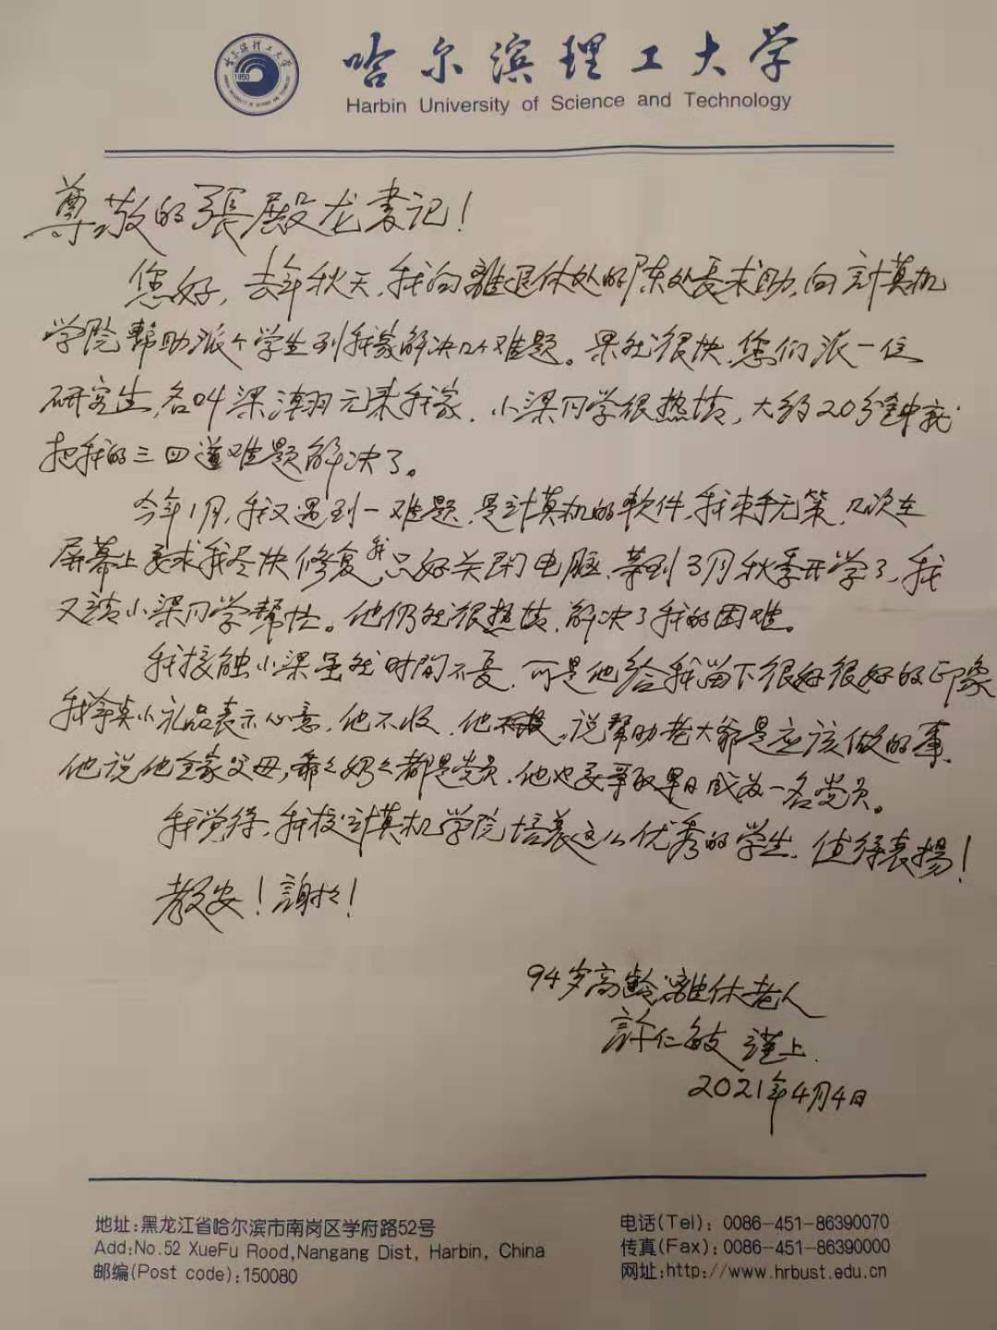 哈尔滨理工大学
Harbin University of Science and Technology
尊敬的張殿龙書记！
您好，去年秋天，我向離退休处的陈处長求助，向計算机
学院幫助派个学生到我家解决几个难题。果然很快，您们派一位
研究生，名叫梁瀚元来我家，小梁同学很热情，大约20分鐘就
把我的三四道难题解决了。
今年1月，我又遇到一难题，是計算机的軟件，我束手无策，几次在
屏幕上要求我尽快修复，我只好关闭电脑，等到3月秋季开学了，我
又請小梁同学幫忙。他仍然很热情，解决了我的困难。
我接触小梁虽然时间不長，可是他給我留下很好很好的印象
我拿其小礼品表示心意，他不收，他說帮助老大爺是应该做的事，
他说他全家父母，爺々奶々都是党员，他也要爭取早日成为一名党员。
我觉得，我校計算机学院培养这么优秀的学生，值得表揚！
教安！謝々！
94岁高齡離休老人
許仁敏 謹上.
2021年4月4日
地址:黑龙江省哈尔滨市南岗区学府路52号
Add:No.52 XueFu Rood,Nangang Dist, Harbin, China
邮编(Post code):150080
电话(Tel): 0086-451-86390070
传真(Fax): 0086-451-86390000
网址:http://www.hrbust.edu.cn